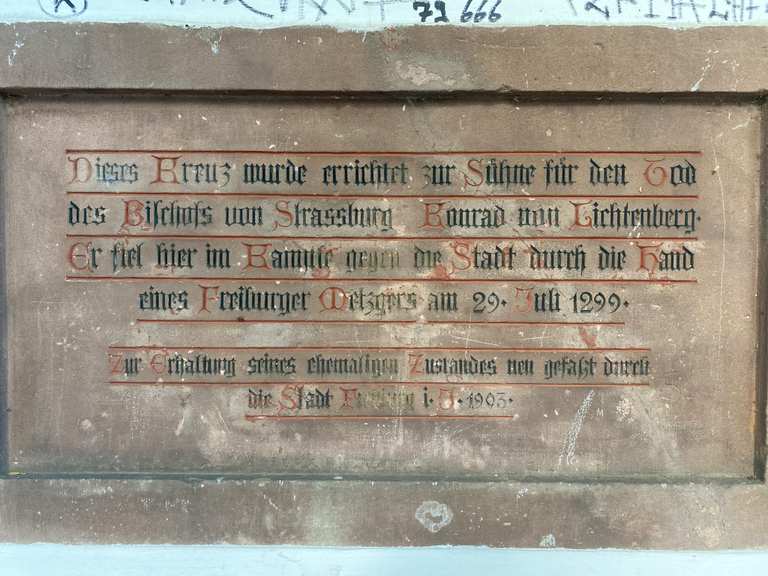 79 666
Dieses Kreuz wurde errichtet zur Sühne für den Tod
des Bischofs von Strassburg Konrad von Lichtenberg.
Er fiel hier im Kampfe gegen die Stadt durch die Hand
eines Freiburger Metzgers am 29. Juli 1299.
Zur Erhaltung seines ehemaligen Zustandes neu gefaßt durch
die Stadt Freiburg i. J. 1903.